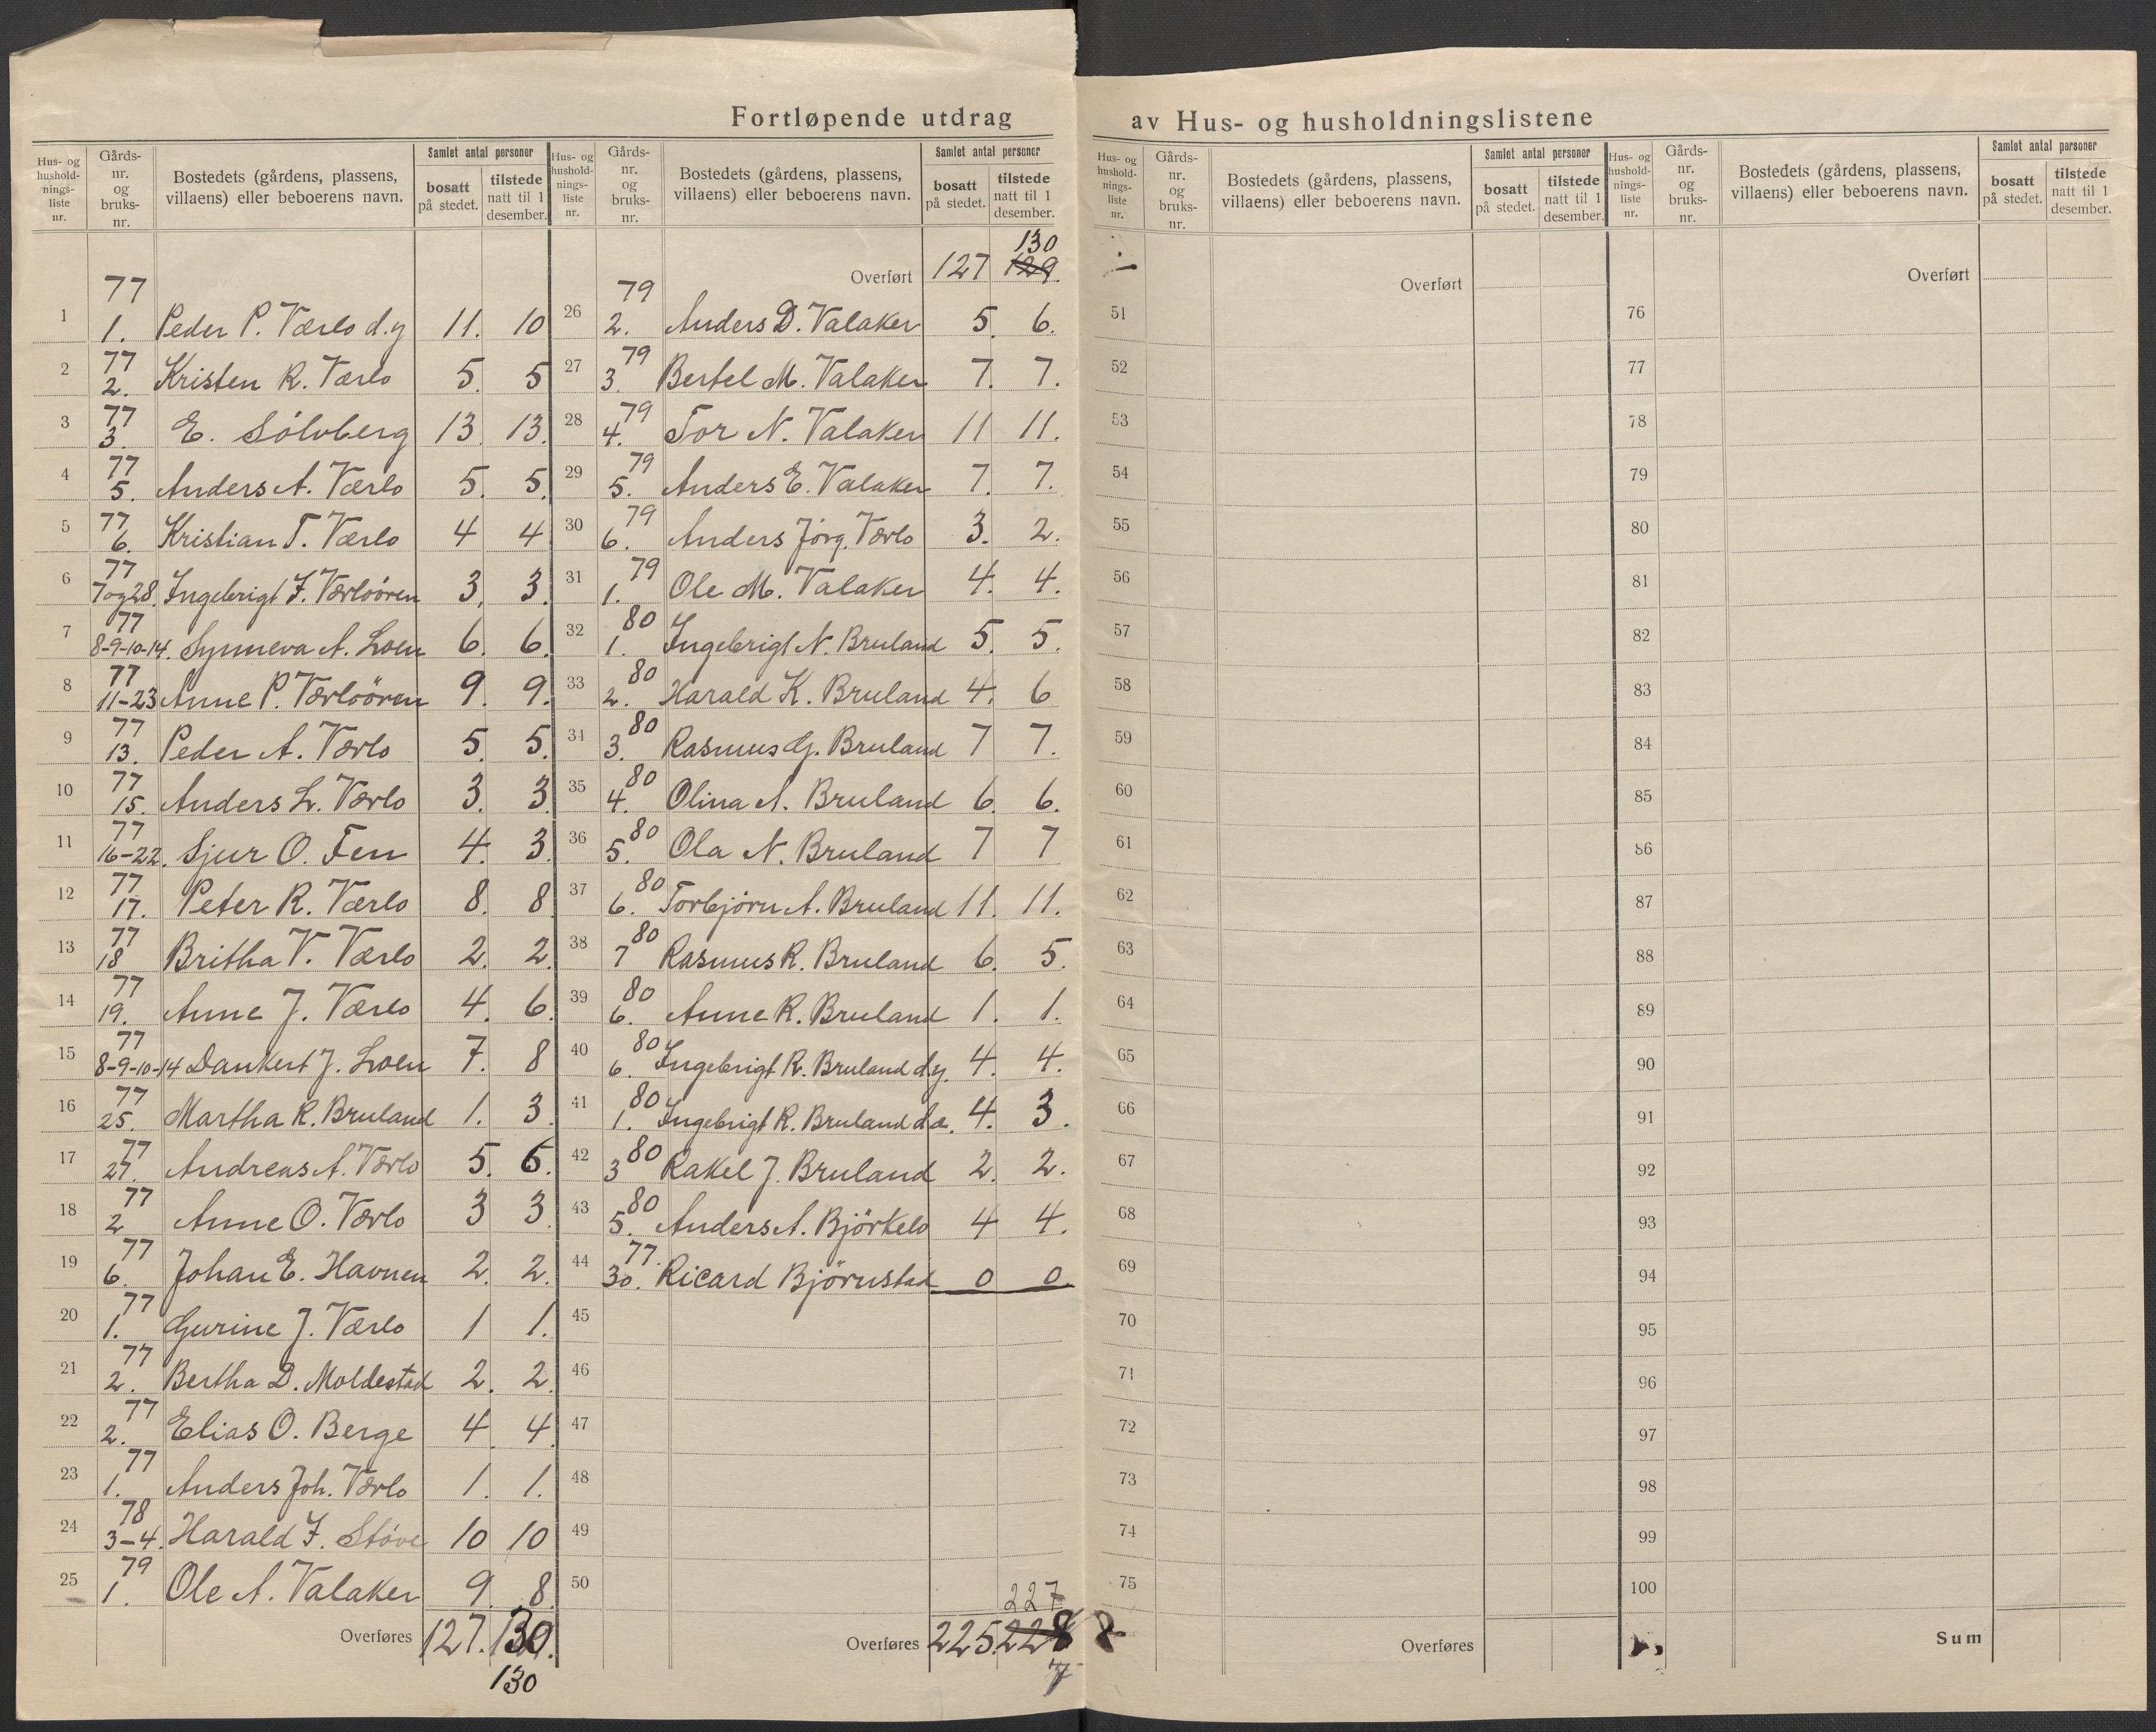 Fortløpende utdrag av Hus- og husholdningslistene
Hus- og husholdningsliste nr.
Gårds-nr. og bruks-nr.
Bostedets (gårdens, plassens, villaens) eller beboerens navn.
Samlet antal personer
bosatt på stedet.
tilstede natt til 1 desember.
1 77 1. Peder P. Værlo d.y 11. 10
2 77 2. Kristen R. Værlo 5. 5
3 77 3. E. Sölvberg 13. 13.
4 77 5. Anders A. Værlo 5. 5.
5 77 6. Kristian T. Værlo 4 4
6 77 7og28. Ingebrigt F. Værloören 3. 3.
7 77 8-9-10-14. Synneva A. Loen 6. 6.
8 77 11-23 Anne P. Værloören 9. 9.
9 77 13. Peder A. Værlo 5. 5.
10 77 15. Anders L. Værlo 3. 3.
11 77 16-22. Sjur O. Fen 4. 3.
12 77 17. Peter R. Værlo 8. 8
13 77 18 Britha V. Værlo 2. 2.
14 77 19. Anne J. Værlo 4. 6.
15 77 8-9-10-14 Dankert J. Loen 7. 8
16 77 25. Martha R. Bruland 1. 3.
17 77 27. Andreas A. Værlo 5. 6.
18 77 2 Anne O. Værlo 3 3.
19 77 6. Johan E. Havnen 2. 2.
20 77 1. Gurine J. Værlo 1 1.
21 77 2. Bertha D. Moldestad 2. 2.
22 77 2. Elias O. Berge 4 4.
23 77 1. Anders Joh. Værlo 1. 1.
24 78 3-4. Harald F. Stöve 10 10
25 79 1. Ole A. Valaker 9. 8.
Overføres 127. 130.
130
Hus- og husholdningsliste nr.
Gårds-nr. og bruks-nr.
Bostedets (gårdens, plassens, villaens) eller beboerens navn.
Samlet antal personer
bosatt på stedet.
tilstede natt til 1 desember.
130
Overført 127 129.
26 79 2. Anders D. Valaker 5. 6.
27 79 3. Bertel M. Valaker 7. 7.
28 79 4. Tor N. Valaker 11 11.
29 79 5. Anders E. Valaker 7. 7.
30 79 6. Anders Jörg. Værlo 3. 2.
31 79 1. Ole M. Valaker 4. 4.
32 80 1. Ingebrigt N. Bruland 5. 5.
33 80 2. Harald K. Bruland 4. 6
34 80 3. Rasmus G. Bruland 7 7.
35 80 4. Olina A. Bruland 6. 6.
36 80 5. Ola N. Bruland 7 7
37 80 6. Torbjörn A. Bruland 11. 11.
38 80 7 Rasmus R. Bruland 6. 5.
39 80 6. Anne R. Bruland 1. 1.
40 80 6. Ingebrigt R. Bruland d.y. 4. 4.
41 80 1. Ingebrigt R. Bruland d.æ. 4. 3.
42 80 3 Rakel J. Bruland 2. 2.
43 80 5. Anders A. Björkelo 4 4.
44 77. 30. Ricard Björnstad 0 0
45
46
47
48
49
50
227
Overføres 225. 228 8
7
Hus- og husholdningsliste nr.
Gårds-nr. og bruks-nr.
Bostedets (gårdens, plassens, villaens) eller beboerens navn.
Samlet antal personer
bosatt på stedet.
tilstede natt til 1 desember.
Overført
51
52
53
54
55
56
57
58
59
60
61
62
63
64
65
66
67
68
69
70
71
72
73
74
75
Overføres
Hus- og husholdningsliste nr.
Gårds-nr. og bruks-nr.
Bostedets (gårdens, plassens, villaens) eller beboerens navn.
Samlet antal personer
bosatt på stedet.
tilstede natt til 1 desember.
Overført
76
77
78
79
80
81
82
83
84
85
86
87
88
89
90
91
92
93
94
95
96
97
98
99
100
Sum